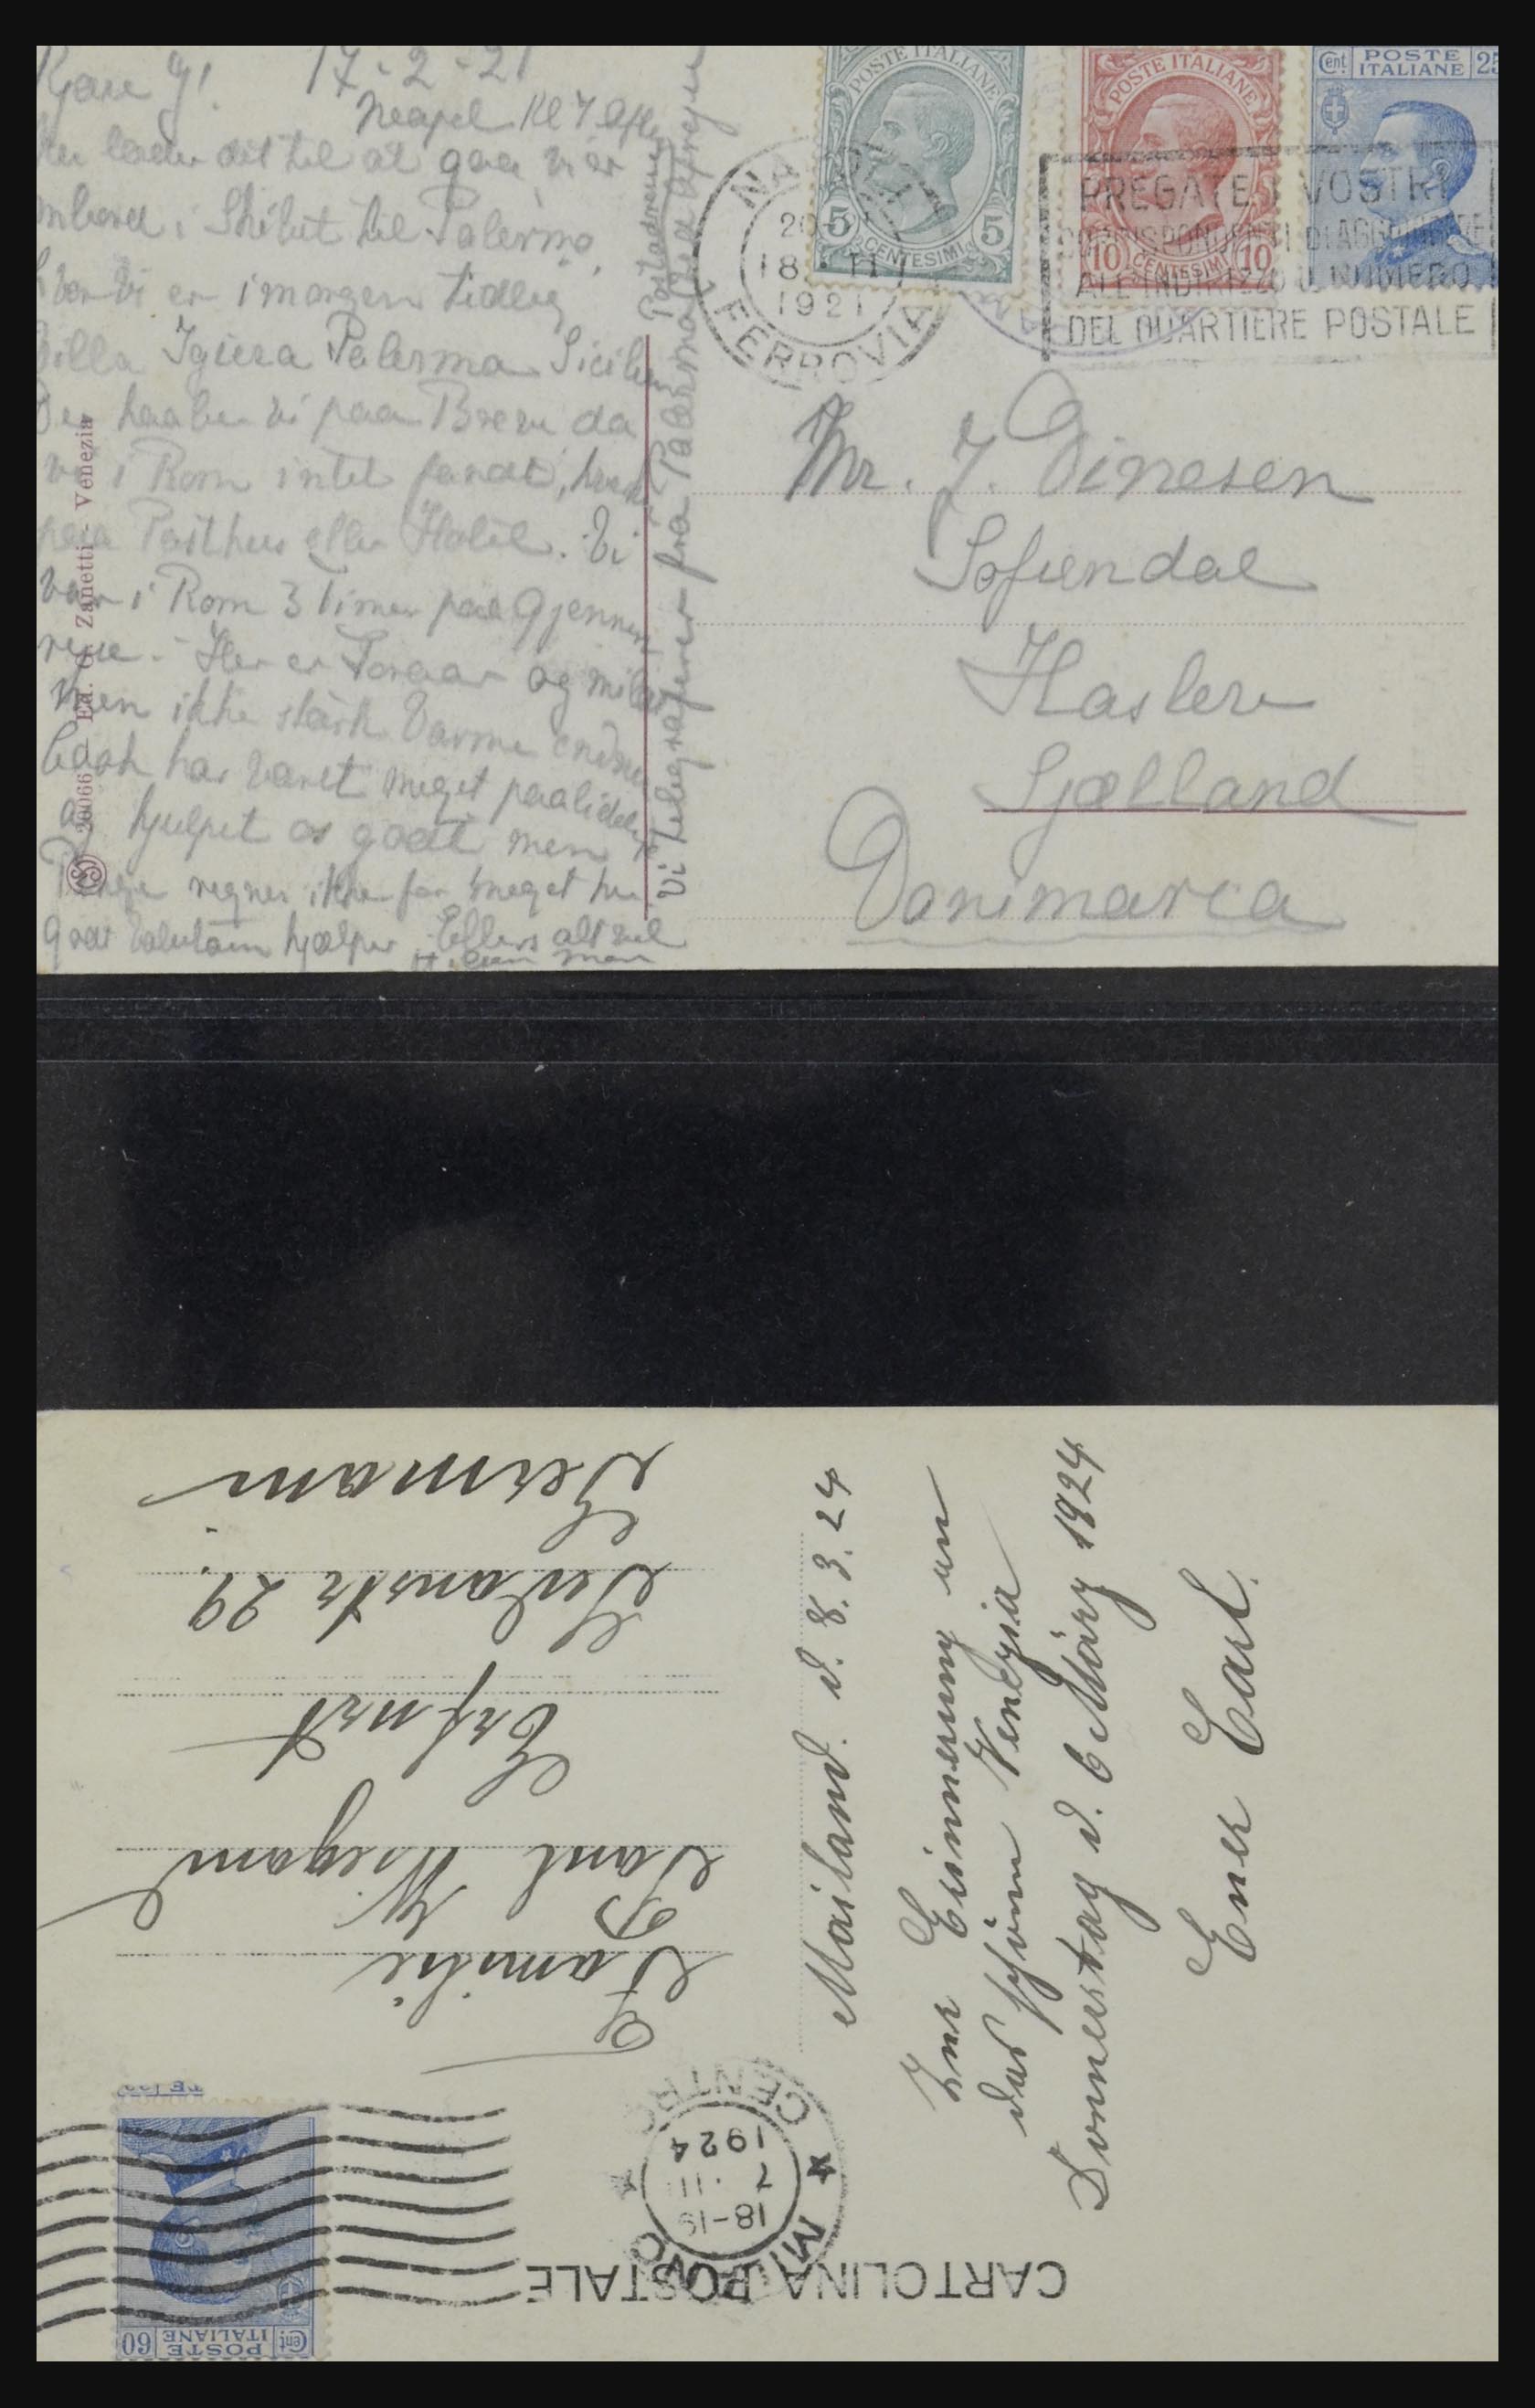 Kære J! 17-2-21
Neapel Kl 7 Eftm
Nu lader det til at gaa vi er
ombord i Skibet til Palermo,
hvor vi er imorgen tidlig
Villa Igiera Palermo Sicilien
Der haaber vi paa Breve da
vi i Rom intet fandt, hverk
paa Posthus eller Hotel. Vi
var i Rom 3 Timer paa Gjennem
rejse. - Her er Foraar og mildt
Men ikke stærk Varme endnu
Cook har været meget paalidelig
og hjulpet os godt men
Penge regnes ikke for meget her
godt Valutaen hjælper. Ellers alt vel
Vi telegraferer fra Palermo
Postadresse
Ed. G. Zanetti - Venezia
20066
POSTE ITALIANE
5 CENTESIMI 5
POSTE ITALIANE
10 CENTESIMI 10
Cent. POSTE ITALIANE 25
NAPOLI
18 II
1921
FERROVIA
PREGATE I VOSTRI
CORRISPONDENTI DI AGGIUNGERE
ALL'INDIRIZZO IL NUMERO
DEL QUARTIERE POSTALE
Mr. J. Dinesen
Sofiendal
Haslev
Sjælland
Danimarca
CARTOLINA POSTALE
Cent. POSTE ITALIANE 60
MILANO
18-19
7 III
1924
CENTRO
Familie
Paul Wiegand
Erfurt
Sedanstr 29.
Germani
Mailand. d. 8. 3. 24
Zur Erinnerung an
das schöne Venezia
Donnerstag d. 6 März 1924
Euer Carl.